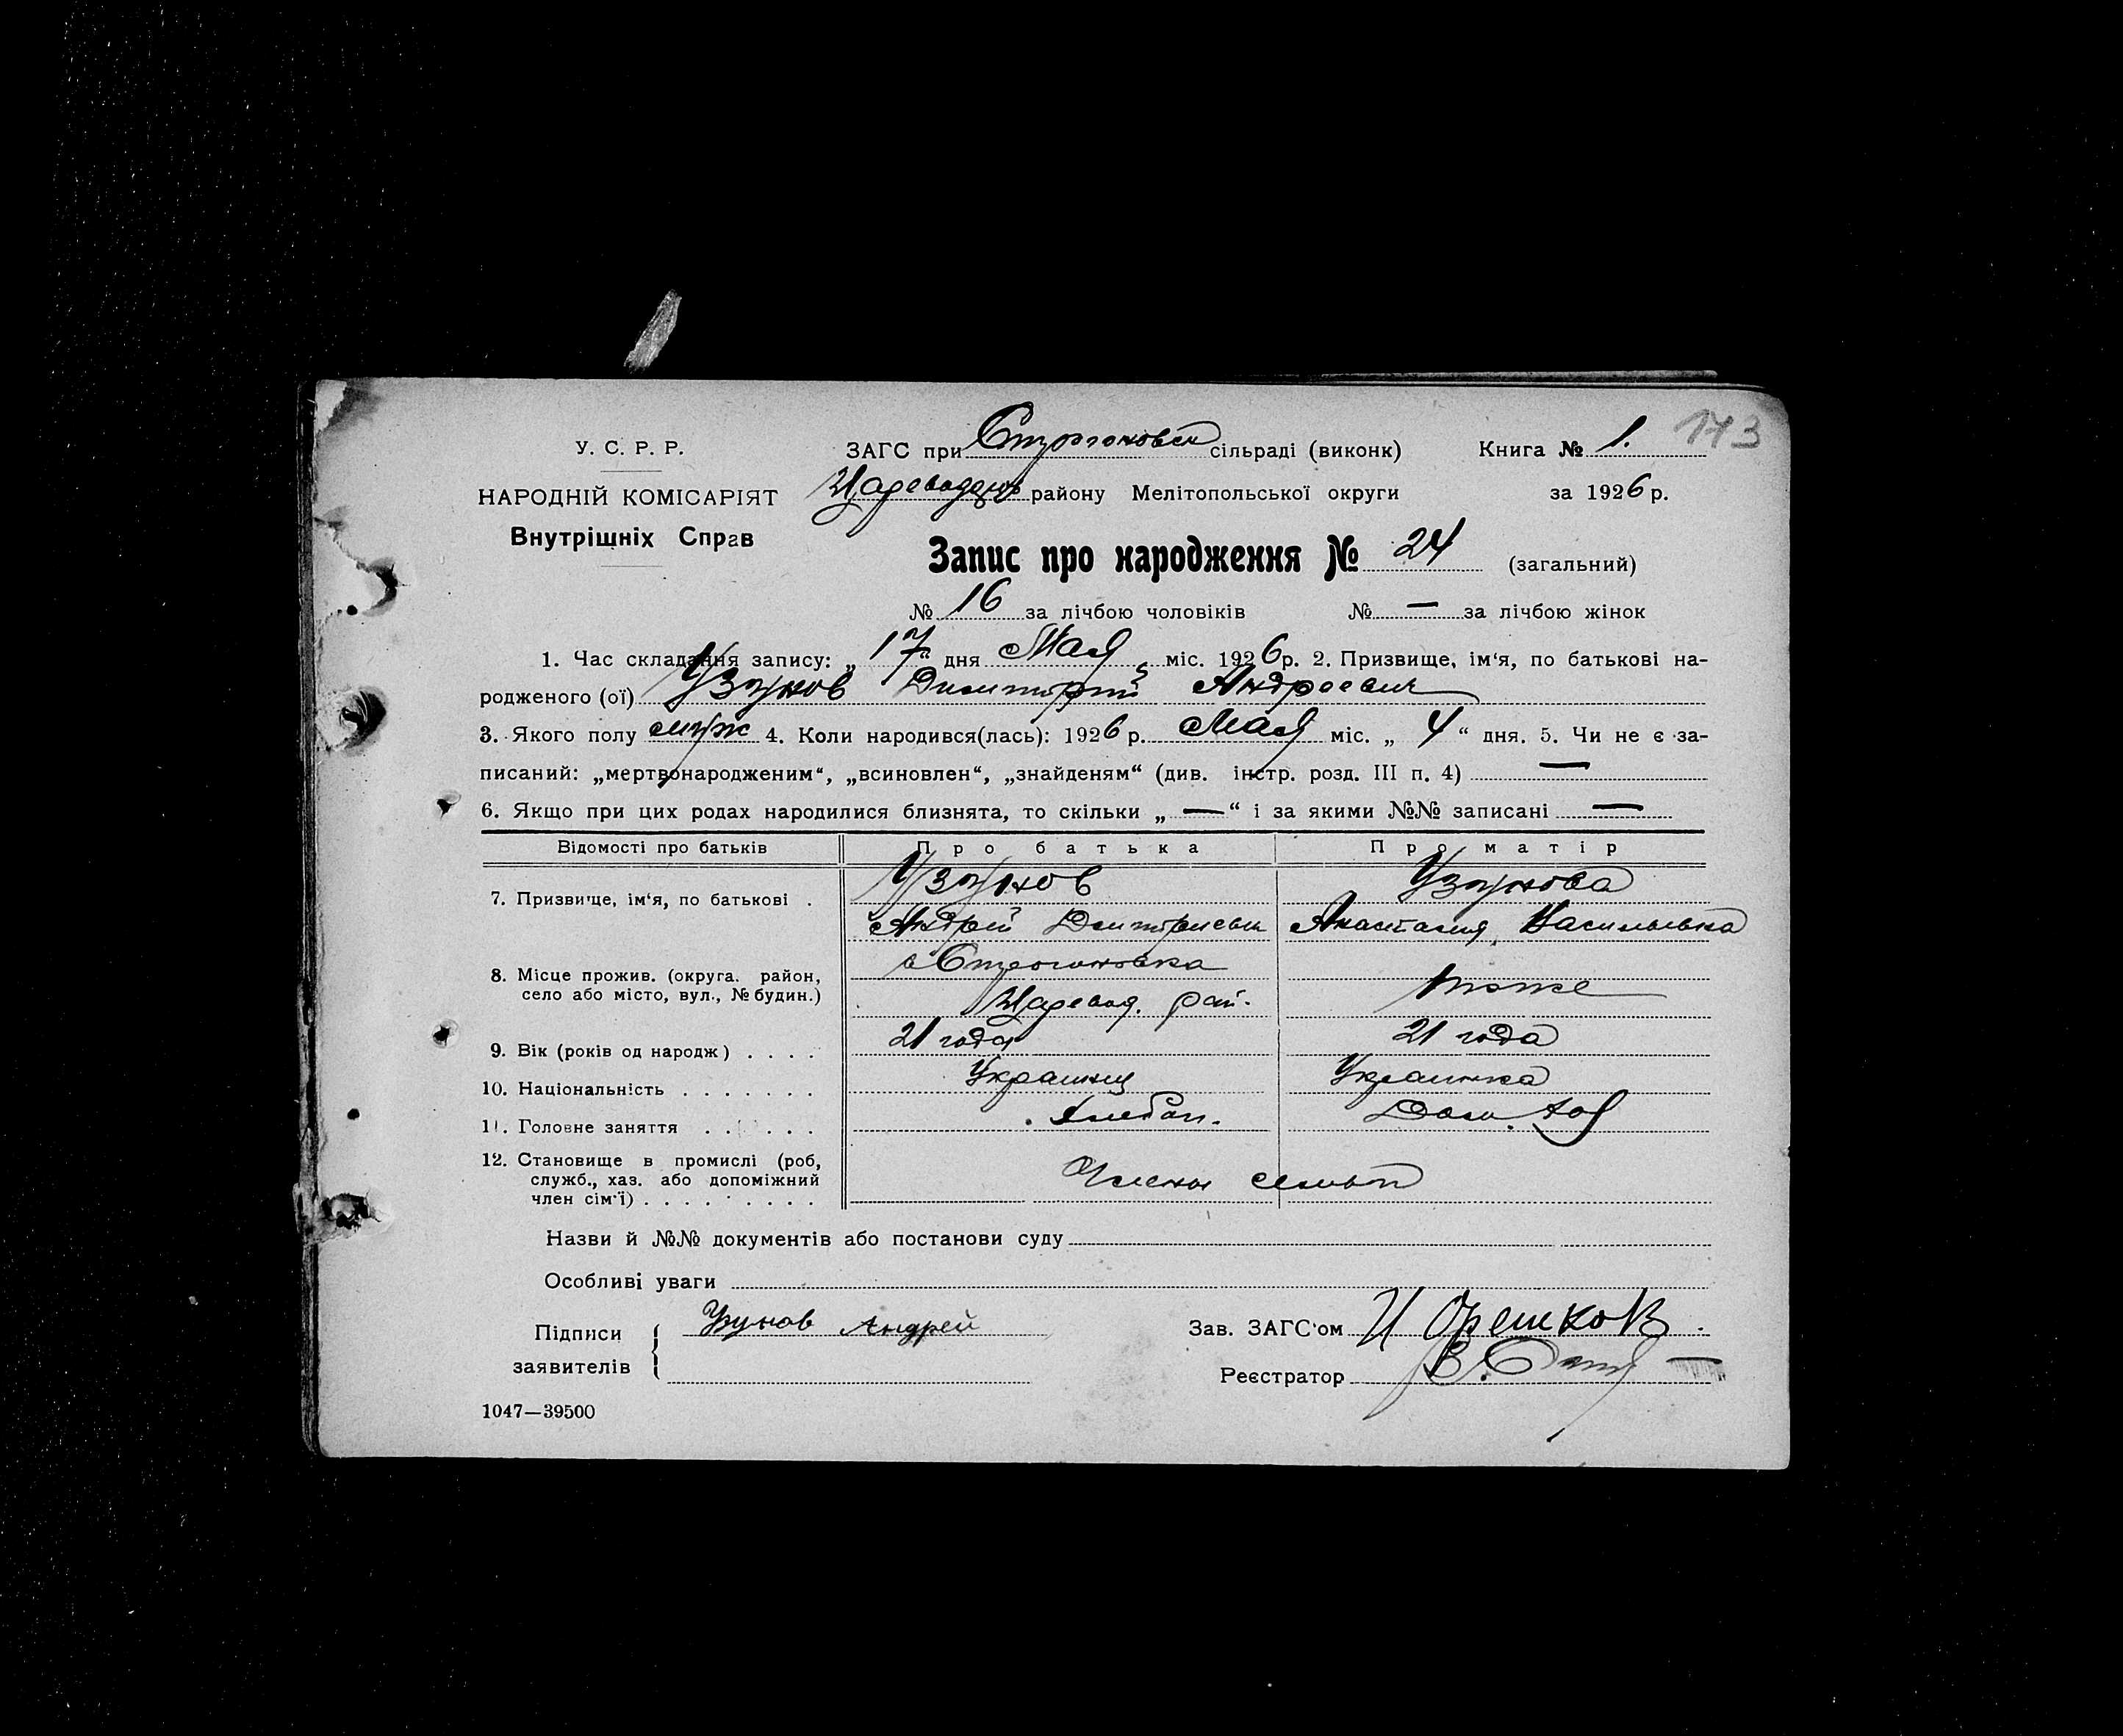 173
У. С. Р. Р.
ЗАГС при Строгоновск сільраді (виконк) Книга № 1.
НАРОДНІЙ КОМІСАРІЯТ
Царевод району Мелітопольської округи за 1926 р.
Внутрішніх Справ
Запис про народження № 24 (загальний)
№ 16 за лічбою чоловіків № — за лічбою жінок
1. Час складання запису: „17“ дня Мая міс. 1926 р. 2. Призвище, ім‘я, по батькові на-
родженого (ої) Узунов Димитрий Андреевич
3. Якого полу муж 4. Коли народився(лась): 1926 р. Мая міс. „ 4 “ дня. 5. Чи не є за-
писаний: „мертвонародженим“, „всиновлен“, „знайденям“ (див. інстр. розд. III п. 4) —
6. Якщо при цих родах народилися близнята, то скільки „ — “ і за якими №№ записані —
Відомості про батьків Про батька Про матір
7. Призвище, ім‘я, по батькові . Узунов Узунова
Андрей Димитриевич Анастасия Васильевна
8. Місце прожив. (округа. район, село або місто, вул., № будин.) с Строгоновка
Царевод. рай. тоже
9. Вік (років од народж) . . . . 21 года 21 года
10. Національність . . . . . . . Украинец Украинка
11. Головне заняття . . . . . . Хлебоп. Дом. хоз
12. Становище в промислі (роб,
служб., хаз. або допоміжний
член сім‘ї) . . . . . . . . . Члены семьи
Назви й №№ документів або постанови суду
Особливі уваги
Підписи заявителів Узунов Андрей
Зав. ЗАГС‘ом И Орешков.
Реєстратор В.
1047—39500